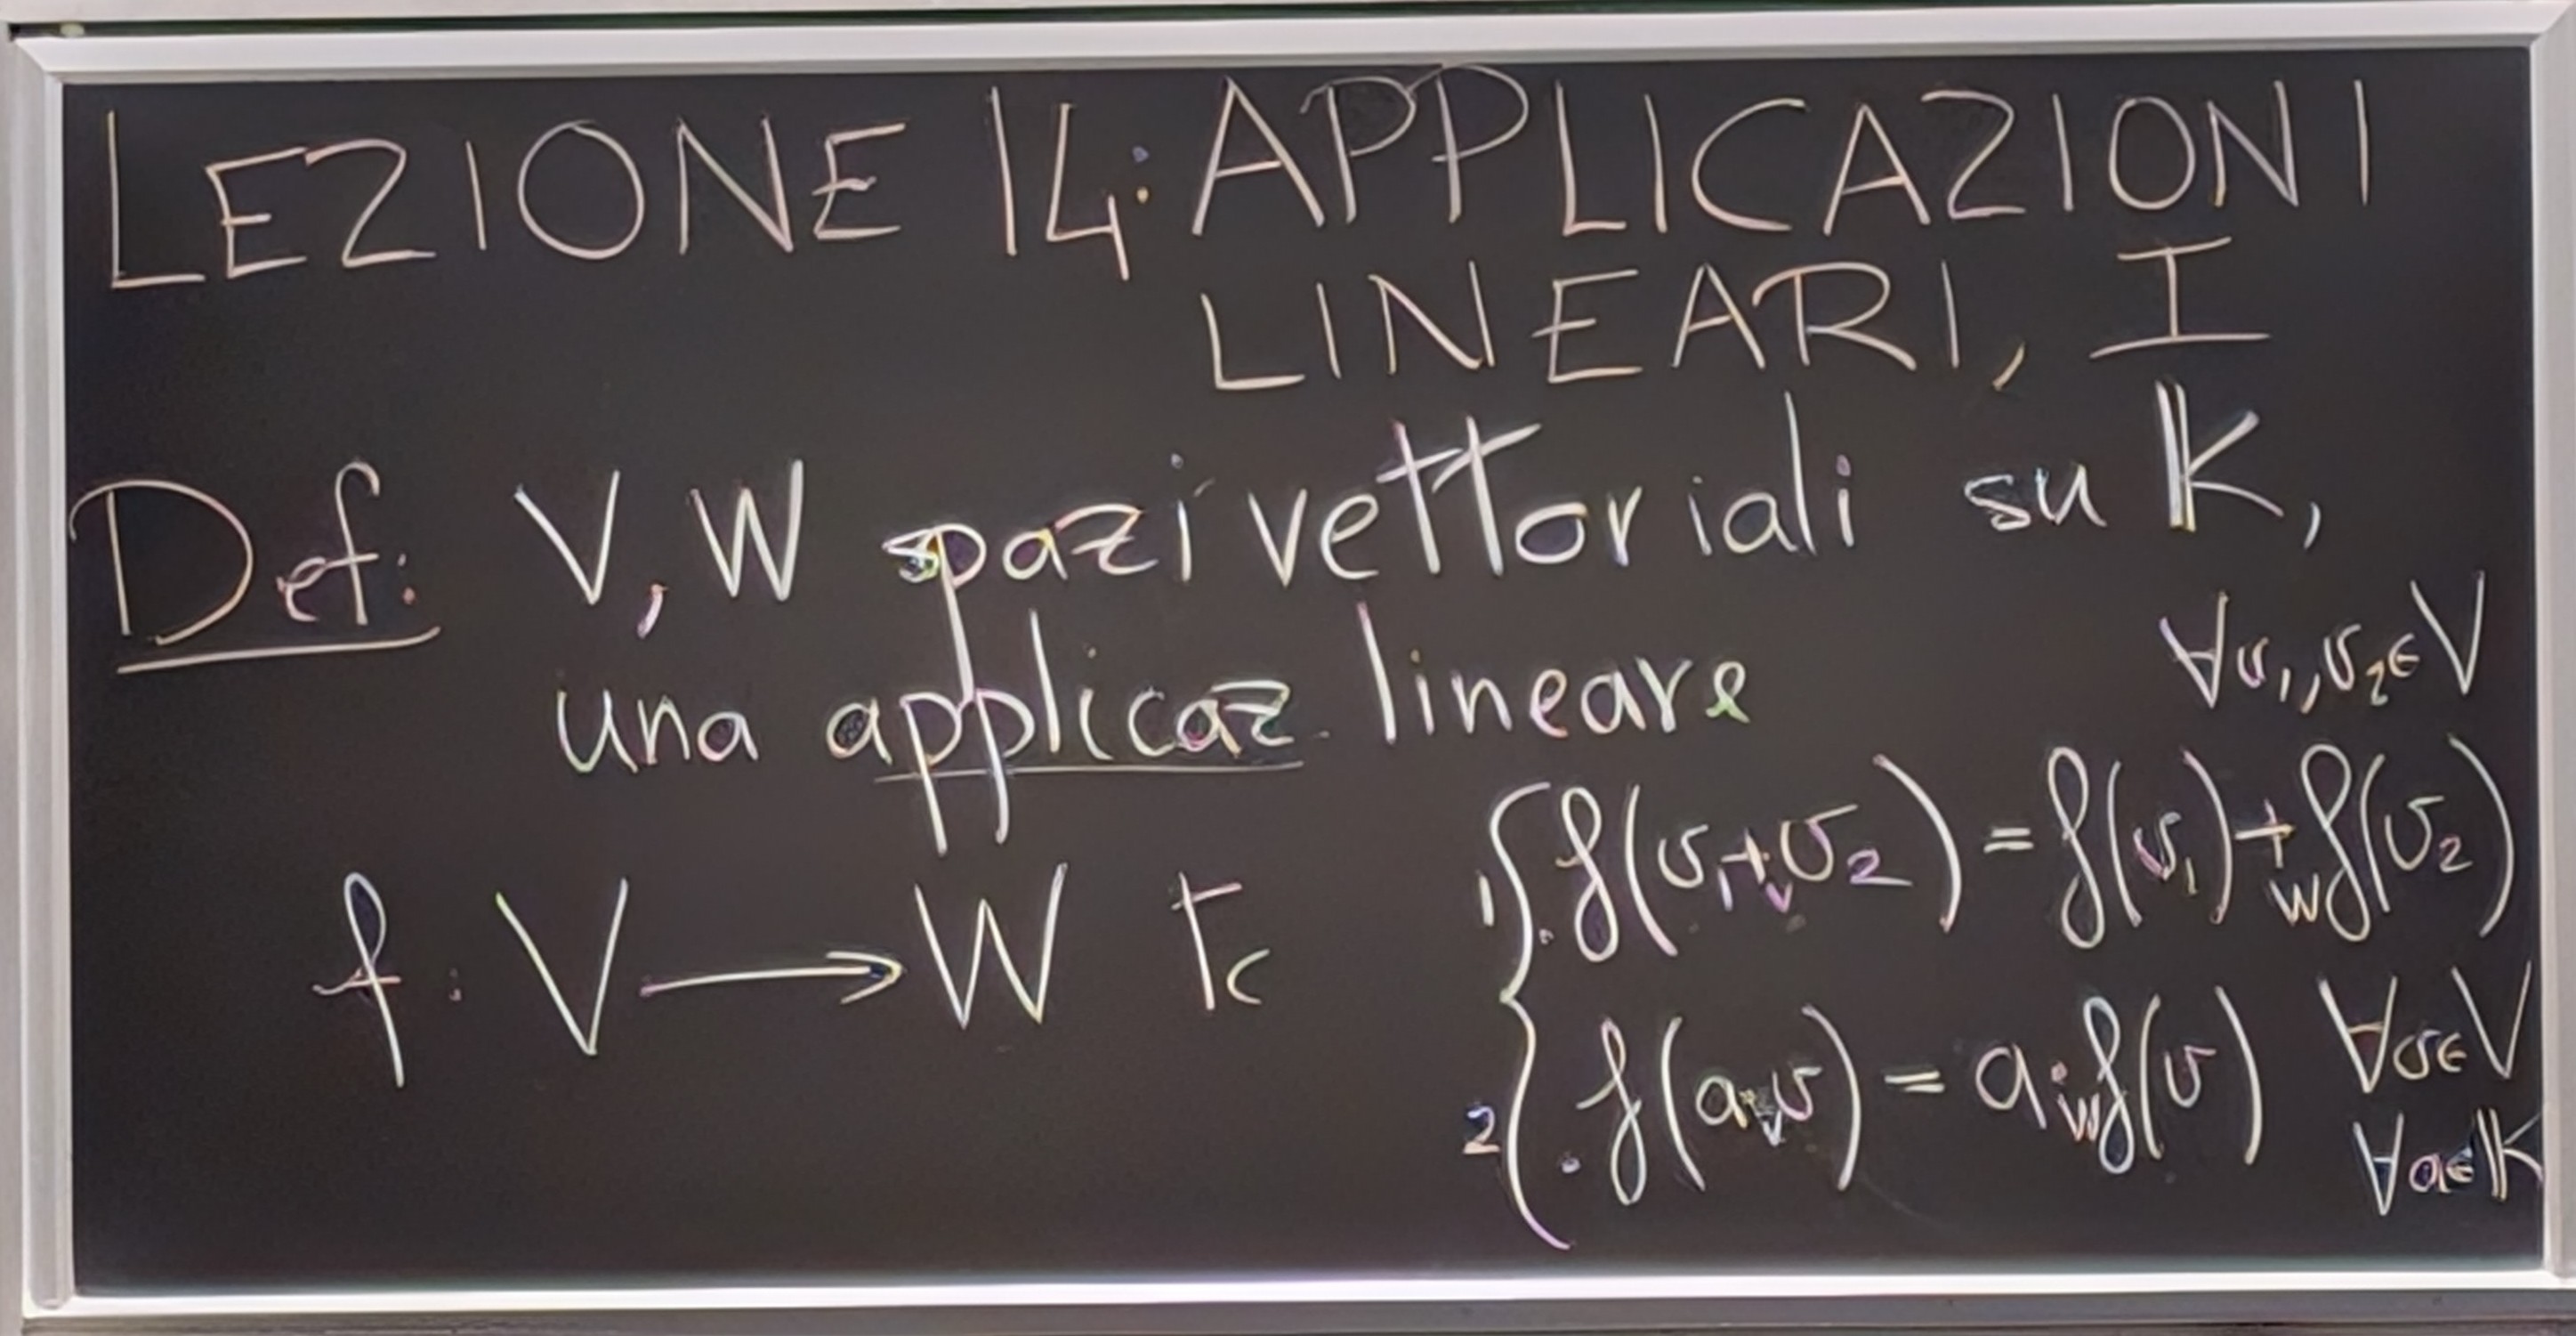 LEZIONE 14: APPLICAZIONI
LINEARI, I
Def: V, W spazi vettoriali su 𝕂,
una applicaz. lineare
∀v₁,v₂∈V
f: V ⟶ W tc
1 { · f(v₁+_V v₂) = f(v₁) +_W f(v₂)
2 { · f(a·_V v) = a·_W f(v) ∀v∈V
∀a∈𝕂